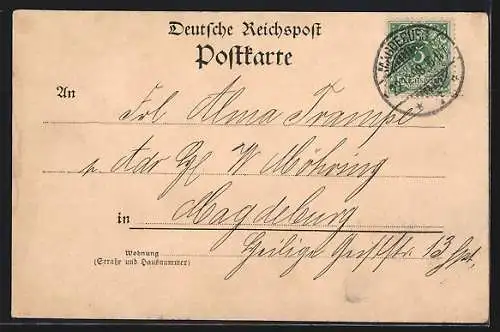 Deutsche Reichspost
Postkarte
MAGDEBURG
5
An
Frl. Alma Trampe
p. Adr. W Möhring
in Magdeburg
Wohnung
(Straße und Hausnummer)
Heilige Geiststr. 13